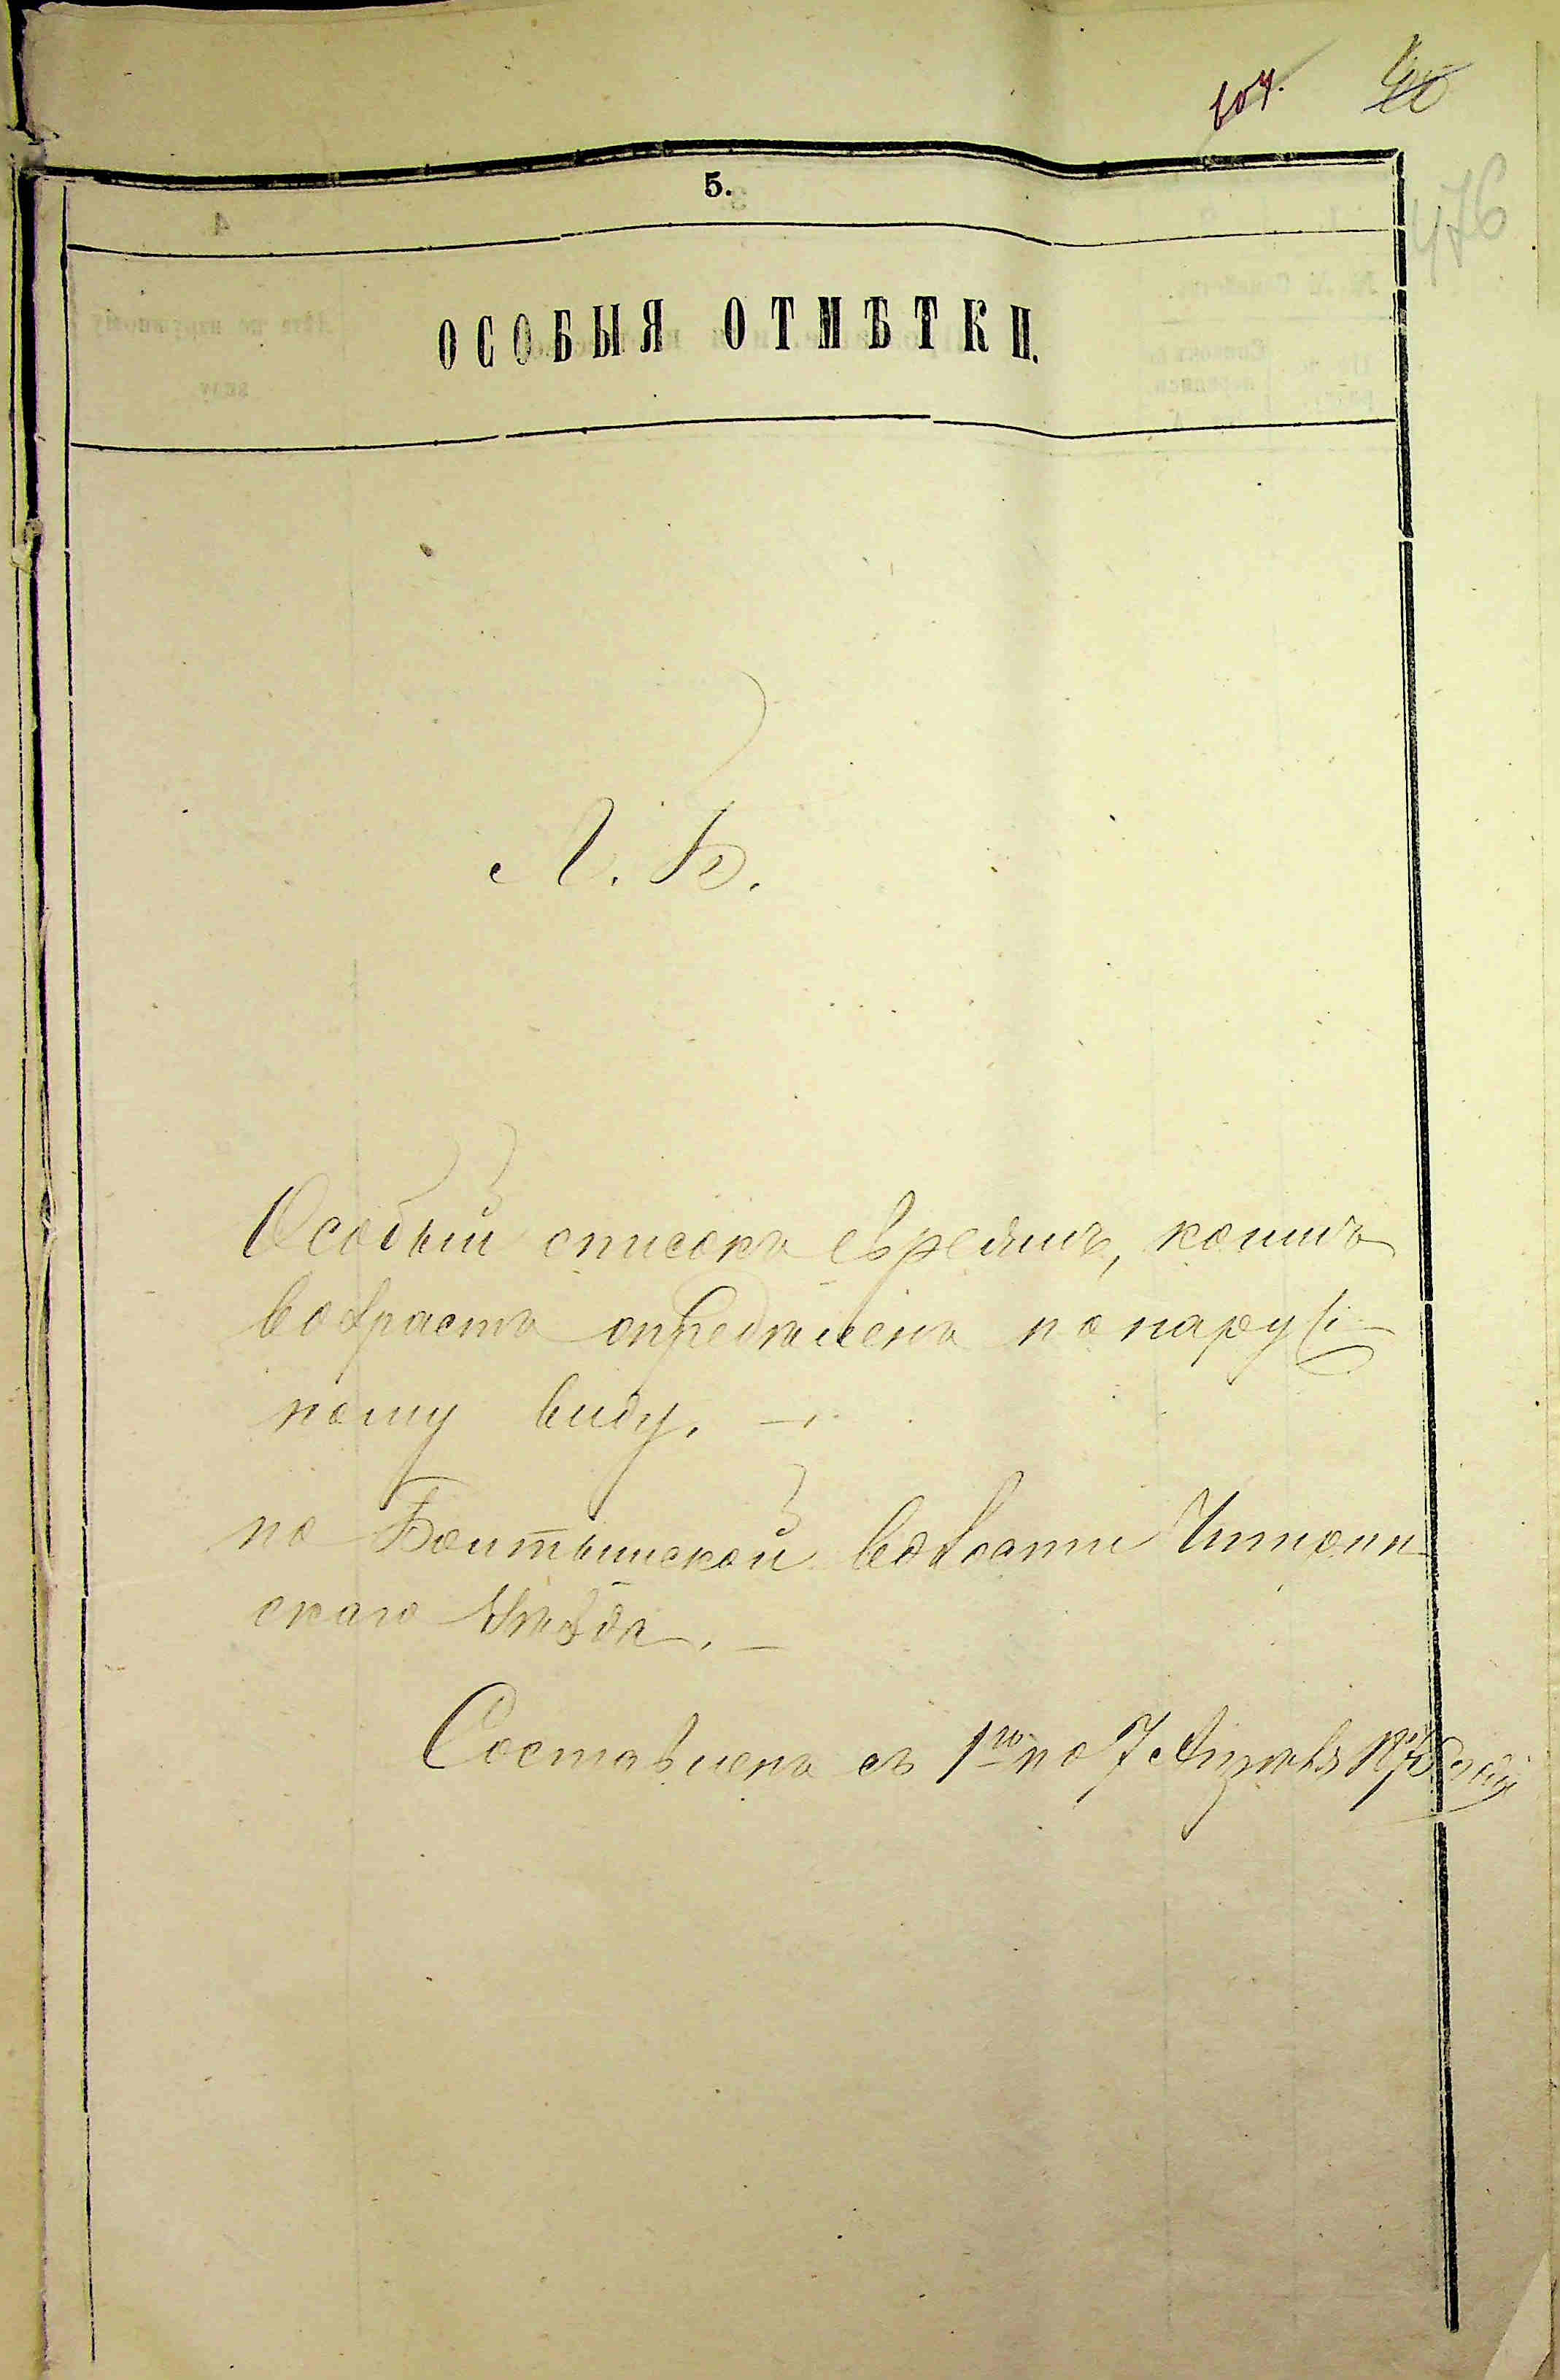 607.
476
5.
ОСОБЫЯ ОТМѢТКИ.
Л. Б.
Особый списокъ евреямъ, коимъ
возрастъ опредѣленъ по наруж-
ному виду. —
по Болтышской волости Чигирин-
скаго уѣзда. —
Составленъ съ 1го по 7 Апрѣля 187 года